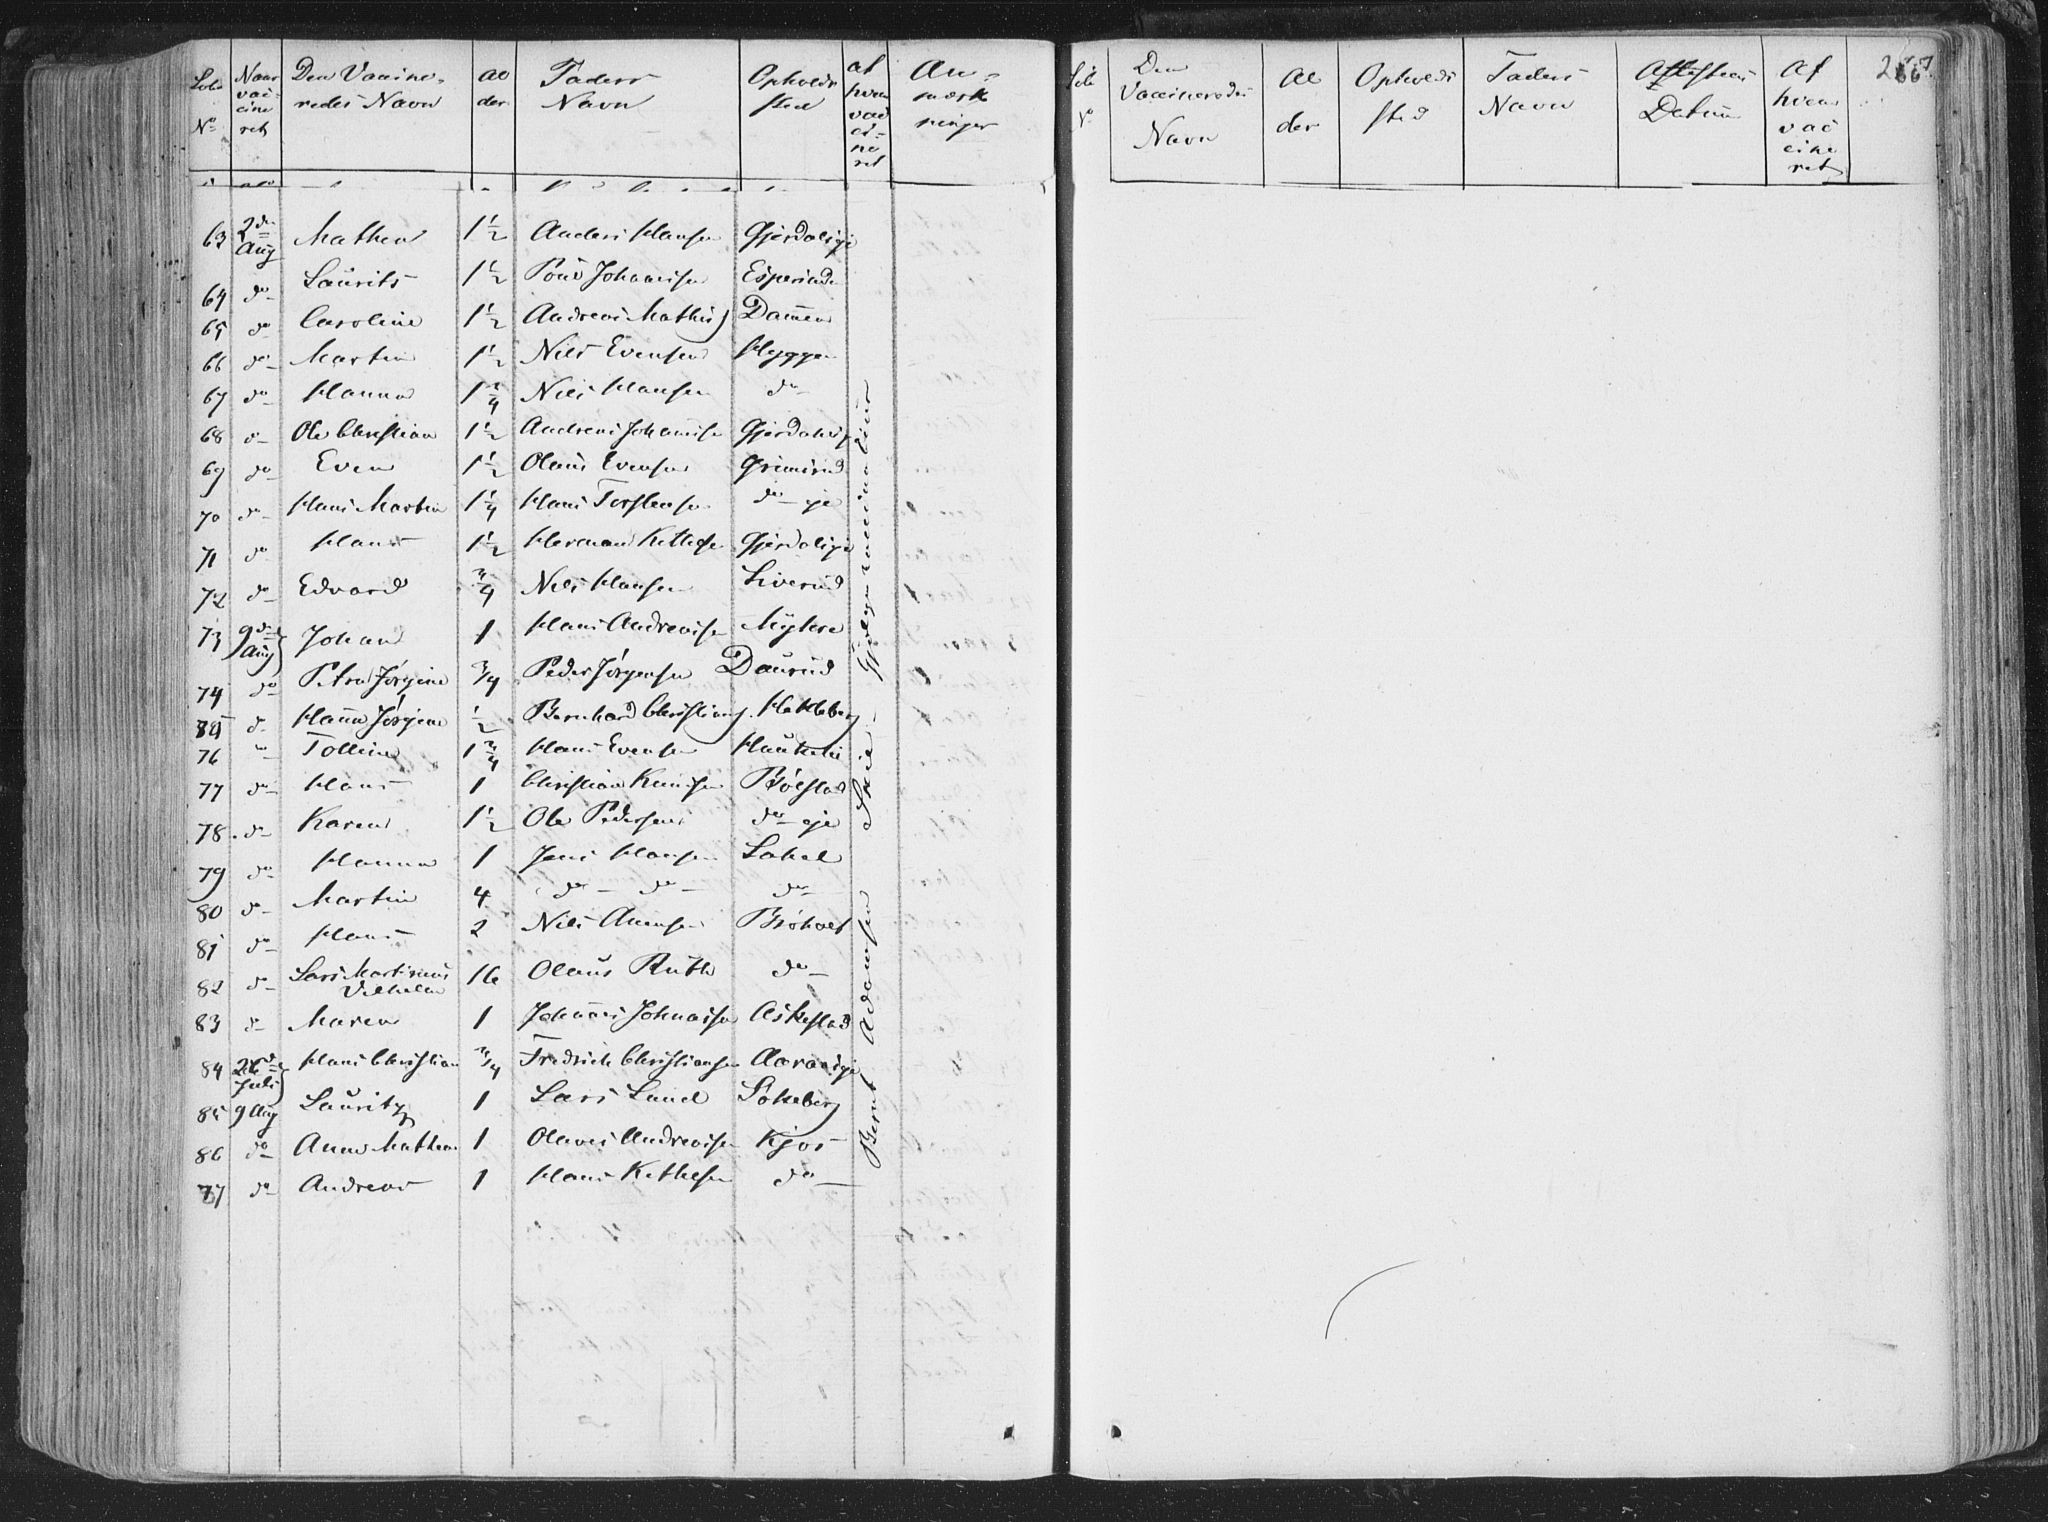 Løb. No | Naar vac- cine ret | Den Vaccine- redes Navn | Al der | Faders Navn | Opholds sted | af hvem vac ci- ne ret | An- mærk ninger
63 | 2de Aug | Mathea | 1 1/2 | Anders Hansen | Gjerdalseje
64 | do | Laurits | 1 1/2 | Poul Johannsen | Espernd
65 | do | Caroline | 1 1/2 | Andreas Mathis | Dammen
66 | do | Martin | 1 1/2 | Nils Evensen | Hyggen
67 | do | Hanna | 1 3/4 | Nils Hansen | do
68 | do | Ole Christian | 1 1/2 | Andreas Johannsen | Gjerdalseje
69 | do | Even | 1 1/2 | Olaus Evensen | Grimsrud
70 | do | Hans Martin | 1 1/4 | Hans Torstensen | do eje
71 | do | Hans | 1 1/2 | Herman Kittelsen | Gjerdalseje
72 | do | Edvard | 3/4 | Nils Hansen | Liverud
73 | 9de Aug | Johan | 1 | Hans Andreasen | Myhre
74 | do | Petra Jørgine | 3/4 | Peder Jørgensen | Daurud
85 | do | Hanna Jørgine | 1/2 | Bernhard Christians. | Hekleberg
76 | " | Tolline | 1 3/4 | Hans Evensen |
77 | do | Hans | 1 | Christian Knudsen | Bølstad
78 | do | Karen | 1 1/2 | Ole Pedersen | do eje
79 | do | Hanna | 1 | Jens Hansen |
80 | do | Martin | 4 | do do | do
81 | do | Hans | 2 | Nils Amensen | Brøholt
82 | do | Lars Martinius Vilhelm | 16 | Olaus Ruth | do
83 | do | Maren | 1 | Johannes Johnnsen | Askestad
84 | 26de Juli | Hans Christian | 3/4 | Fredrich Christiansen | Aaraseje
85 | 9 Aug | Lauritz | 1 | Lars Lund | Søheberg
86 | do | Anna Mathea | 1 | Olaves Andreasen | Kjos
77 | do | Andreas | 1 | Hans Kittelsen | do
Bernt Adamsen Skie Hjelpevaccinateur
Løb No | Den Vaccineredes Navn | Al der | Opholds sted | Faders Navn | Attestens Datum | Af hvem vac cine ret | 267.